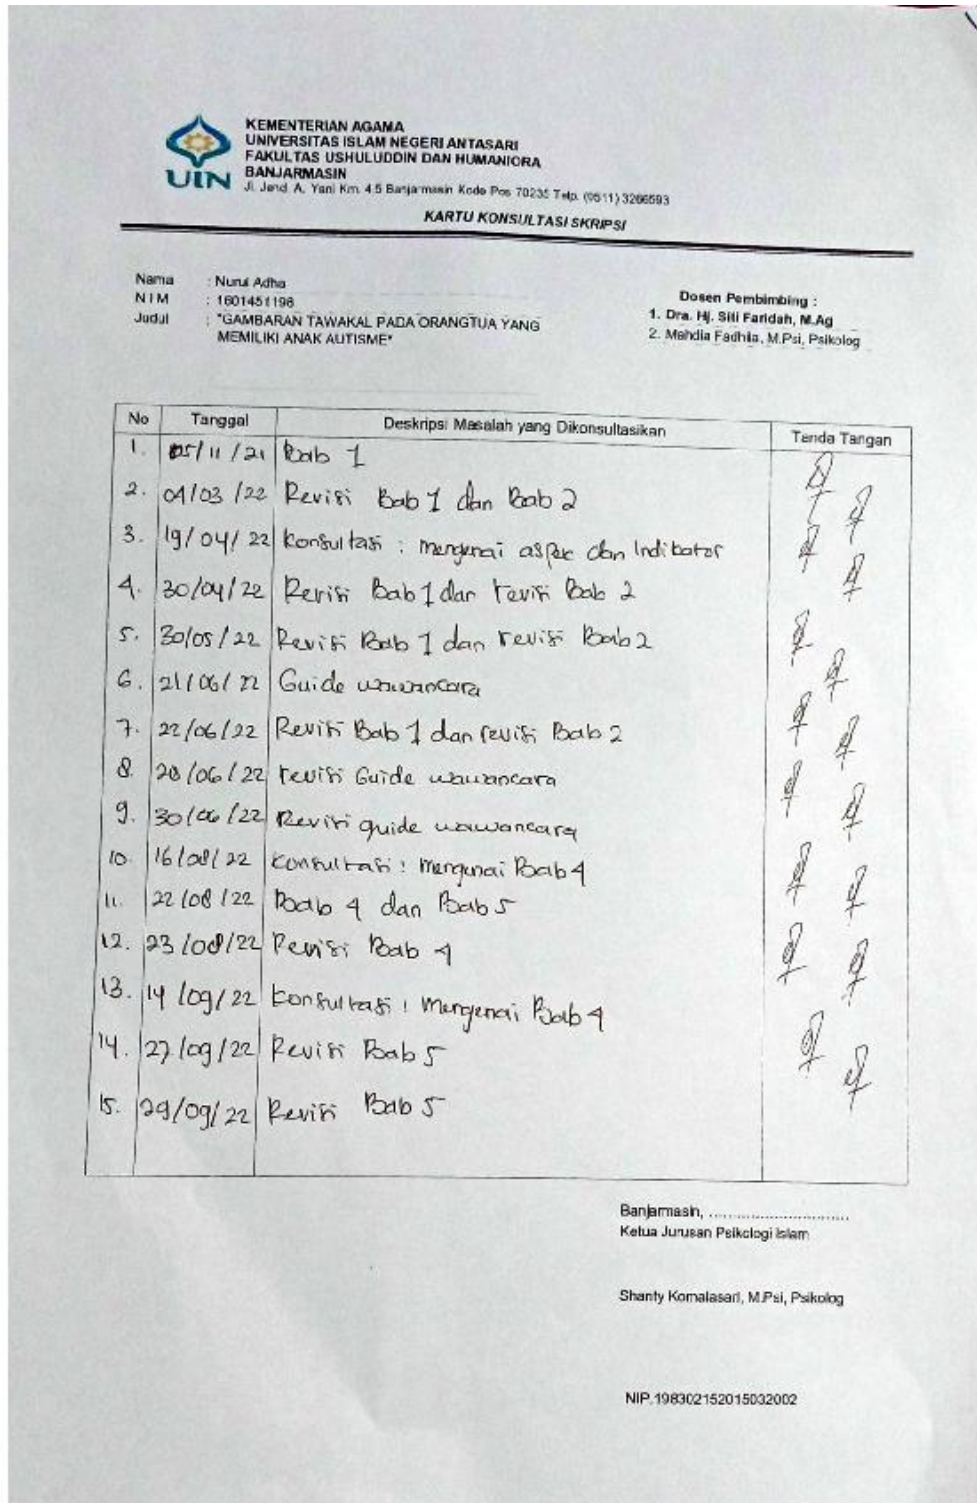 KEMENTERIAN AGAMA
UNIVERSITAS ISLAM NEGERI ANTASARI
FAKULTAS USHULUDDIN DAN HUMANIORA
BANJARMASIN
Jl. Jend. A. Yani Km. 4.5 Banjarmasin Kode Pos 70235 Telp. (0511) 3266593
UIN
KARTU KONSULTASI SKRIPSI
Nama : Nurul Adha
NIM : 1601451196
Judul : "GAMBARAN TAWAKAL PADA ORANGTUA YANG
MEMILIKI ANAK AUTISME"
Dosen Pembimbing :
1. Dra. Hj. Siti Faridah, M.Ag
2. Mahdia Fadhila, M.Psi, Psikolog
No Tanggal Deskripsi Masalah yang Dikonsultasikan Tanda Tangan
1. 05/11/21 Bab 1
2. 04/03/22 Revisi Bab 1 dan Bab 2
3. 19/04/22 Konsultasi : mengenai aspek dan Indikator
4. 30/04/22 Revisi Bab 1 dan revisi Bab 2
5. 30/05/22 Revisi Bab 1 dan revisi Bab 2
6. 21/06/22 Guide wawancara
7. 22/06/22 Revisi Bab 1 dan revisi Bab 2
8. 28/06/22 revisi Guide wawancara
9. 30/06/22 Revisi guide wawancara
10. 16/08/22 Konsultasi : mengenai Bab 4
11. 22/08/22 Bab 4 dan Bab 5
12. 23/08/22 Revisi Bab 4
13. 14/09/22 Konsultasi : Mengenai Bab 4
14. 27/09/22 Revisi Bab 5
15. 29/09/22 Revisi Bab 5
Banjarmasin, ..............................
Ketua Jurusan Psikologi Islam
Shanty Komalasari, M.Psi, Psikolog
NIP.198302152015032002